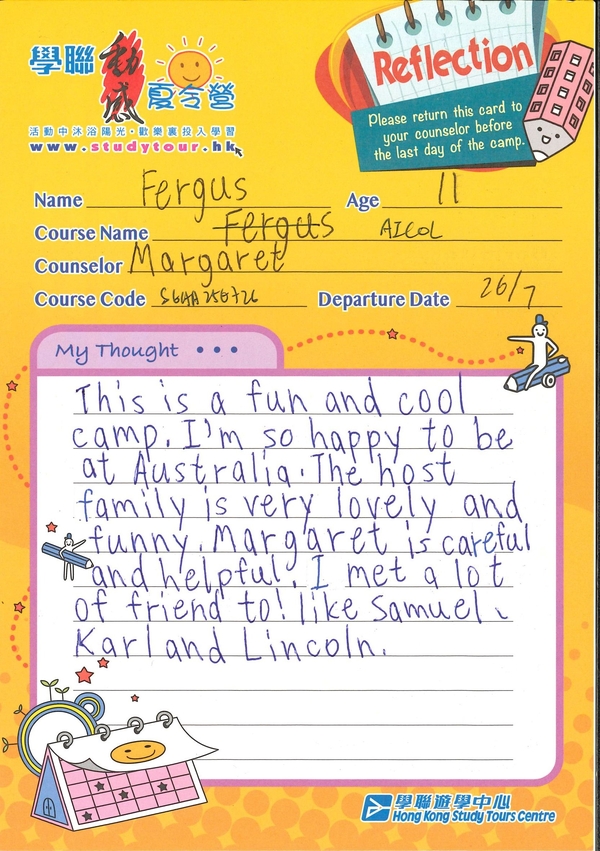 學聯
動感
夏令營
活動中沐浴陽光・歡樂裏投入學習
www.studytour.hk
Reflection
Please return this card to
your counselor before
the last day of the camp.
Name Fergus Age 11
Course Name Fergus AICOL
Counselor Margaret
Course Code Departure Date 26/7
My Thought • • •
This is a fun and cool
camp. I'm so happy to be
at Australia. The host
family is very lovely and
funny. Margaret is careful
and helpful. I met a lot
of friend to! like Samuel、
Karl and Lincoln.
學聯遊學中心
Hong Kong Study Tours Centre